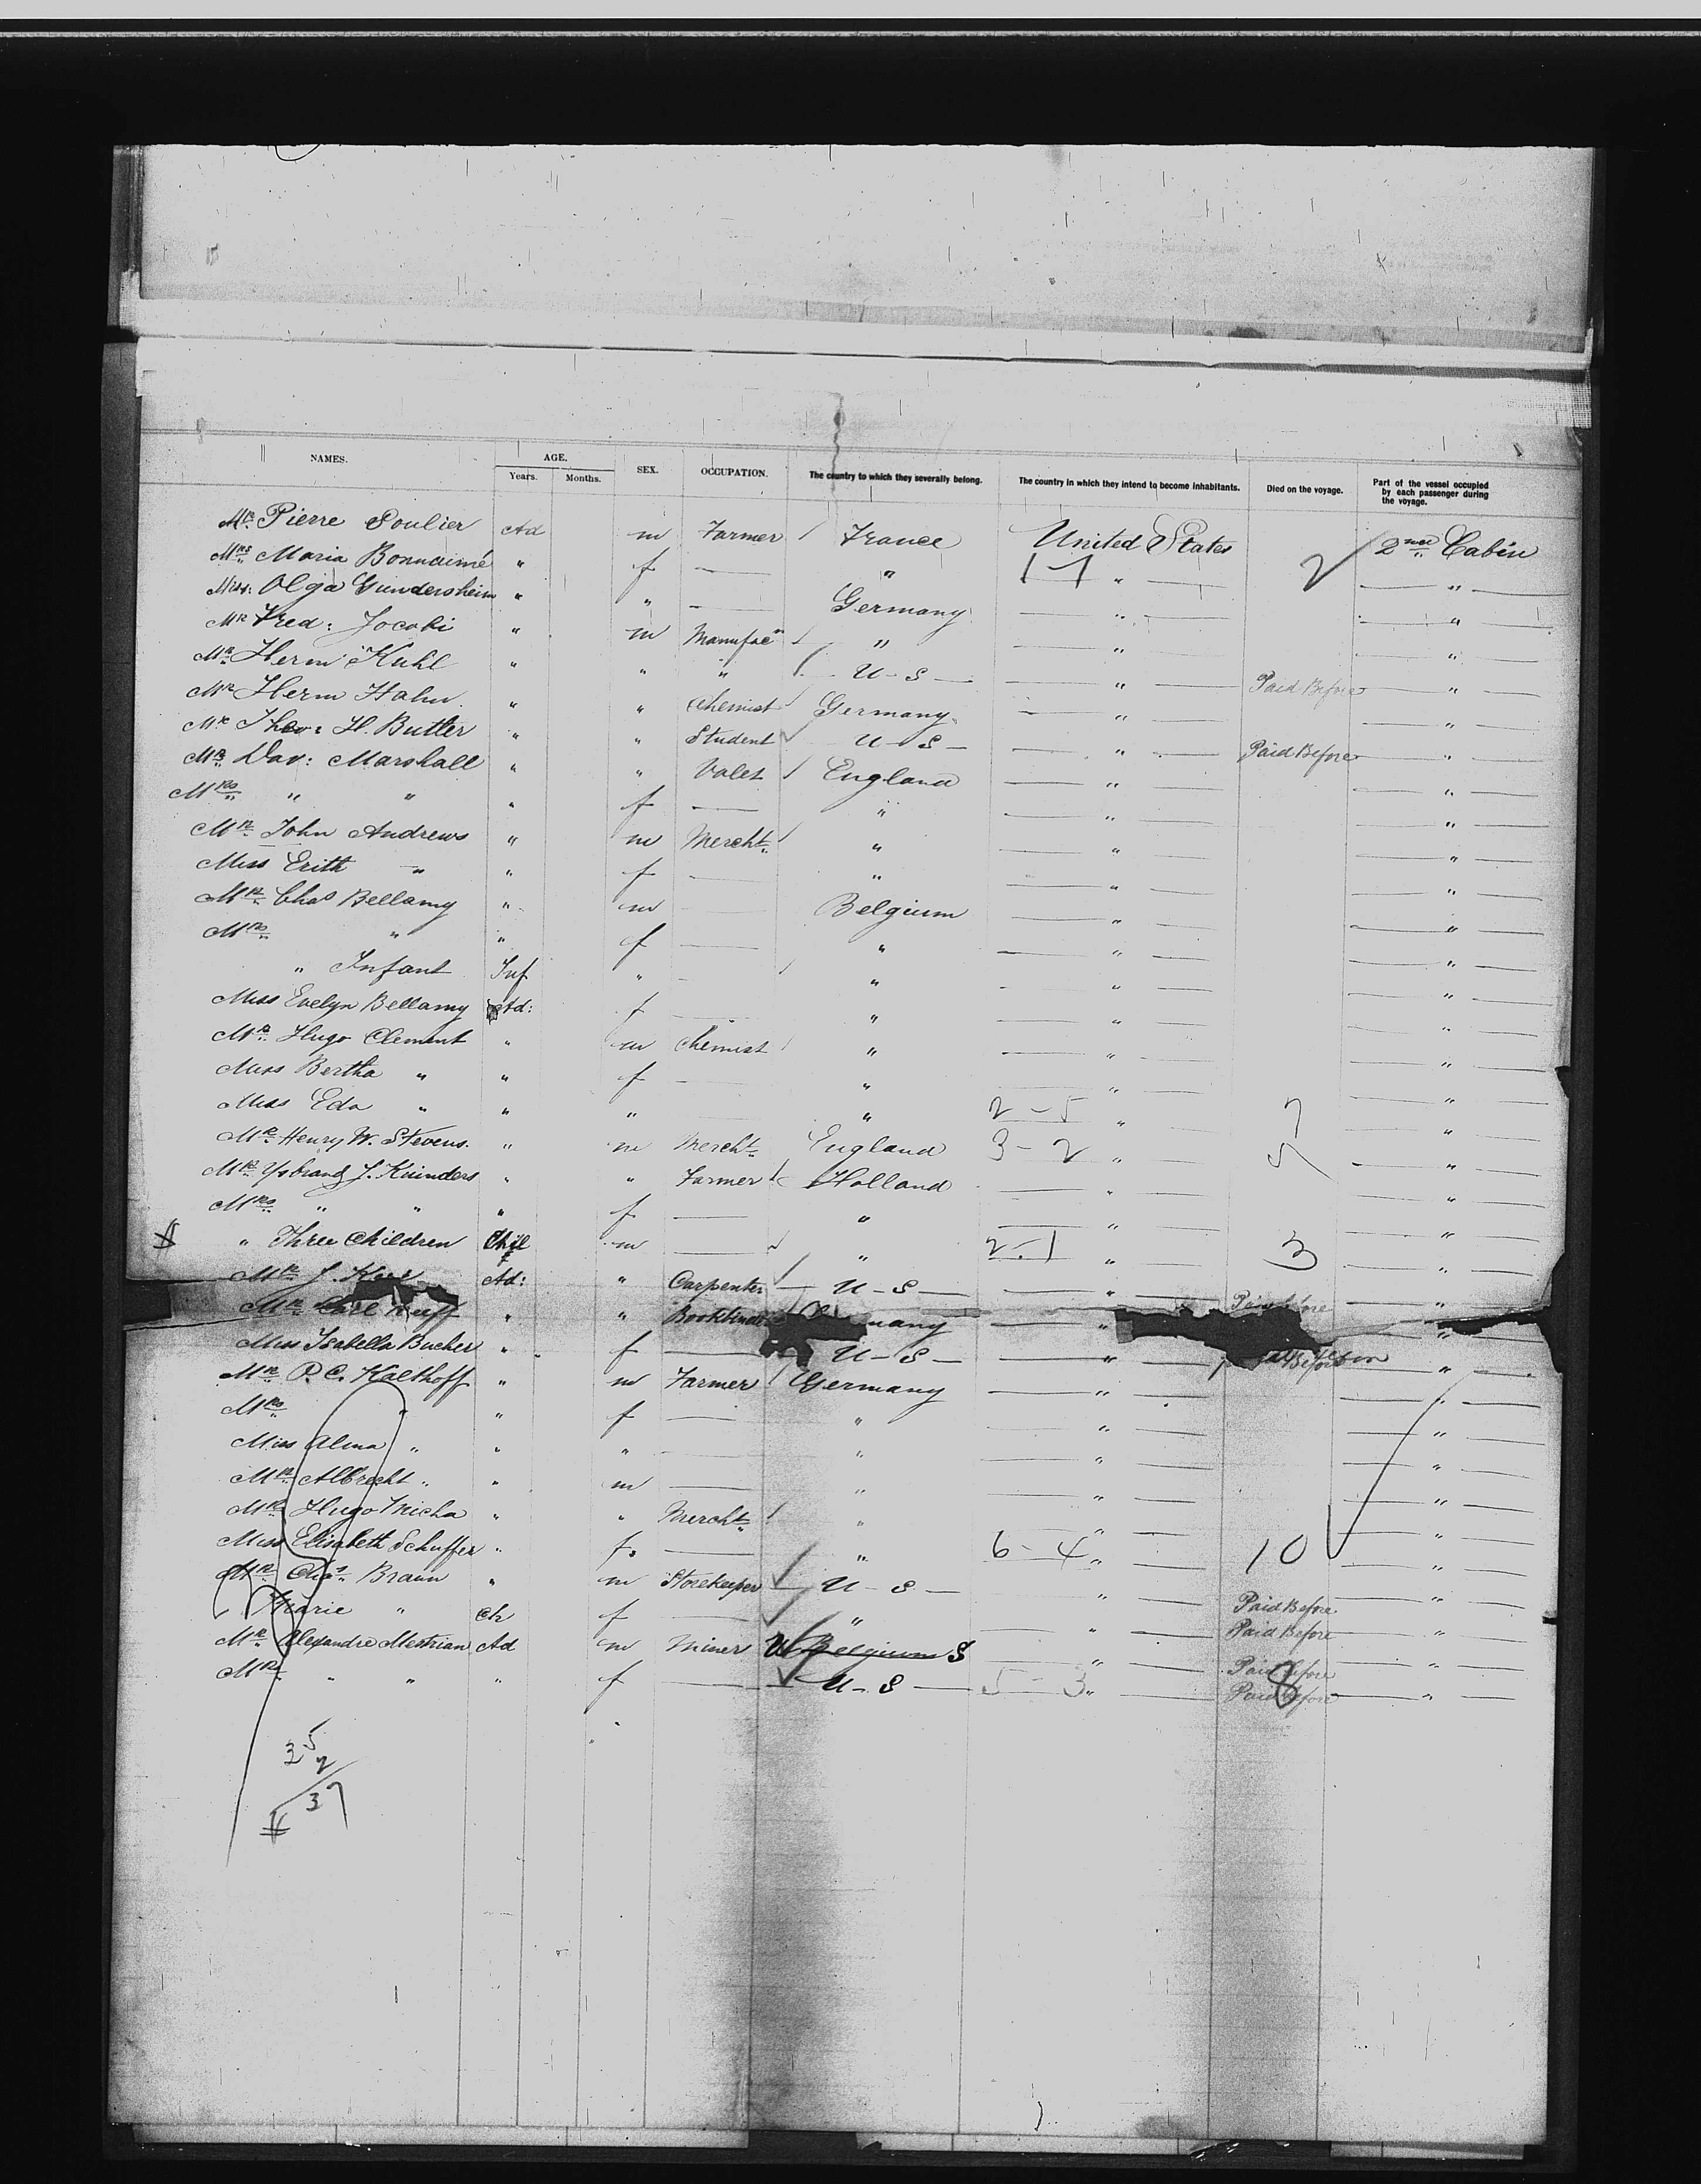 NAMES. AGE. SEX. OCCUPATION. The country to which they severally belong. The country in which they intend to become inhabitants. Died on the voyage. Part of the vessel occupied by each passenger during the voyage.
Years. Months.
Mr. Pierre Soulier Ad m Farmer France United States 2nd Cabin
Mrs Maria Bonnaimé " f — " 1-1 " 2 "
Miss. Olga Gundersheim " " — Germany " "
Mr Fred: Jocobi " m Manufac " " "
Mr. Herm Kuhl " " " U-S " Paid Before "
Mr Herm Hahn " " Chemist Germany " "
Mr Theo: H. Butler " " Student U-S " Paid Before "
Mr. Dav: Marshall " " Valet England " "
Mrs " " " f — " " "
Mr. John Andrews " m Mercht. " " "
Miss Erith " " f — " " "
Mr. Chas Bellamy " m — Belgium " "
Mrs " " f — " " "
" Infant Inf " — " " "
Miss Evelyn Bellamy Ad: f — " " "
Mr. Hugo Clement " m Chemist " " "
Miss Bertha " " f — " " "
Miss Eda " " " — " 2-5 " 7 "
Mr. Henry W. Stevens. " m Mercht. England 3-2 " 5 "
Mr. Ysbrand J. Kuinders " " Farmer Holland " "
Mrs " " " f — " " "
" Three Children Chil m — " 2-1 " 3 "
Mr. J. Ad: " Carpenter U-S " "
Mr. Carl Ruff " " " "
Miss Isabella Bucher " f — U-S " "
Mr. P. C. Kalthoff " m Farmer Germany " "
Mrs " " f — " " "
Miss Alma " " " — " " "
Mr. Albrecht " " m — " " "
Mr. Hugo Micha " " Mercht. " " "
Miss Elisabeth Schuffer " f. — " 6-4 " 10 "
Mr. Chas. Braun " m Storekeeper U-S " Paid Before "
" Marie " Ch f — " " Paid Before "
Mr. Alexandre Mestrian Ad m Miner U Belgium S " Paid Before "
Mrs. " " " f — U-S 5-3 " Paid Before 8 "
35
2
37